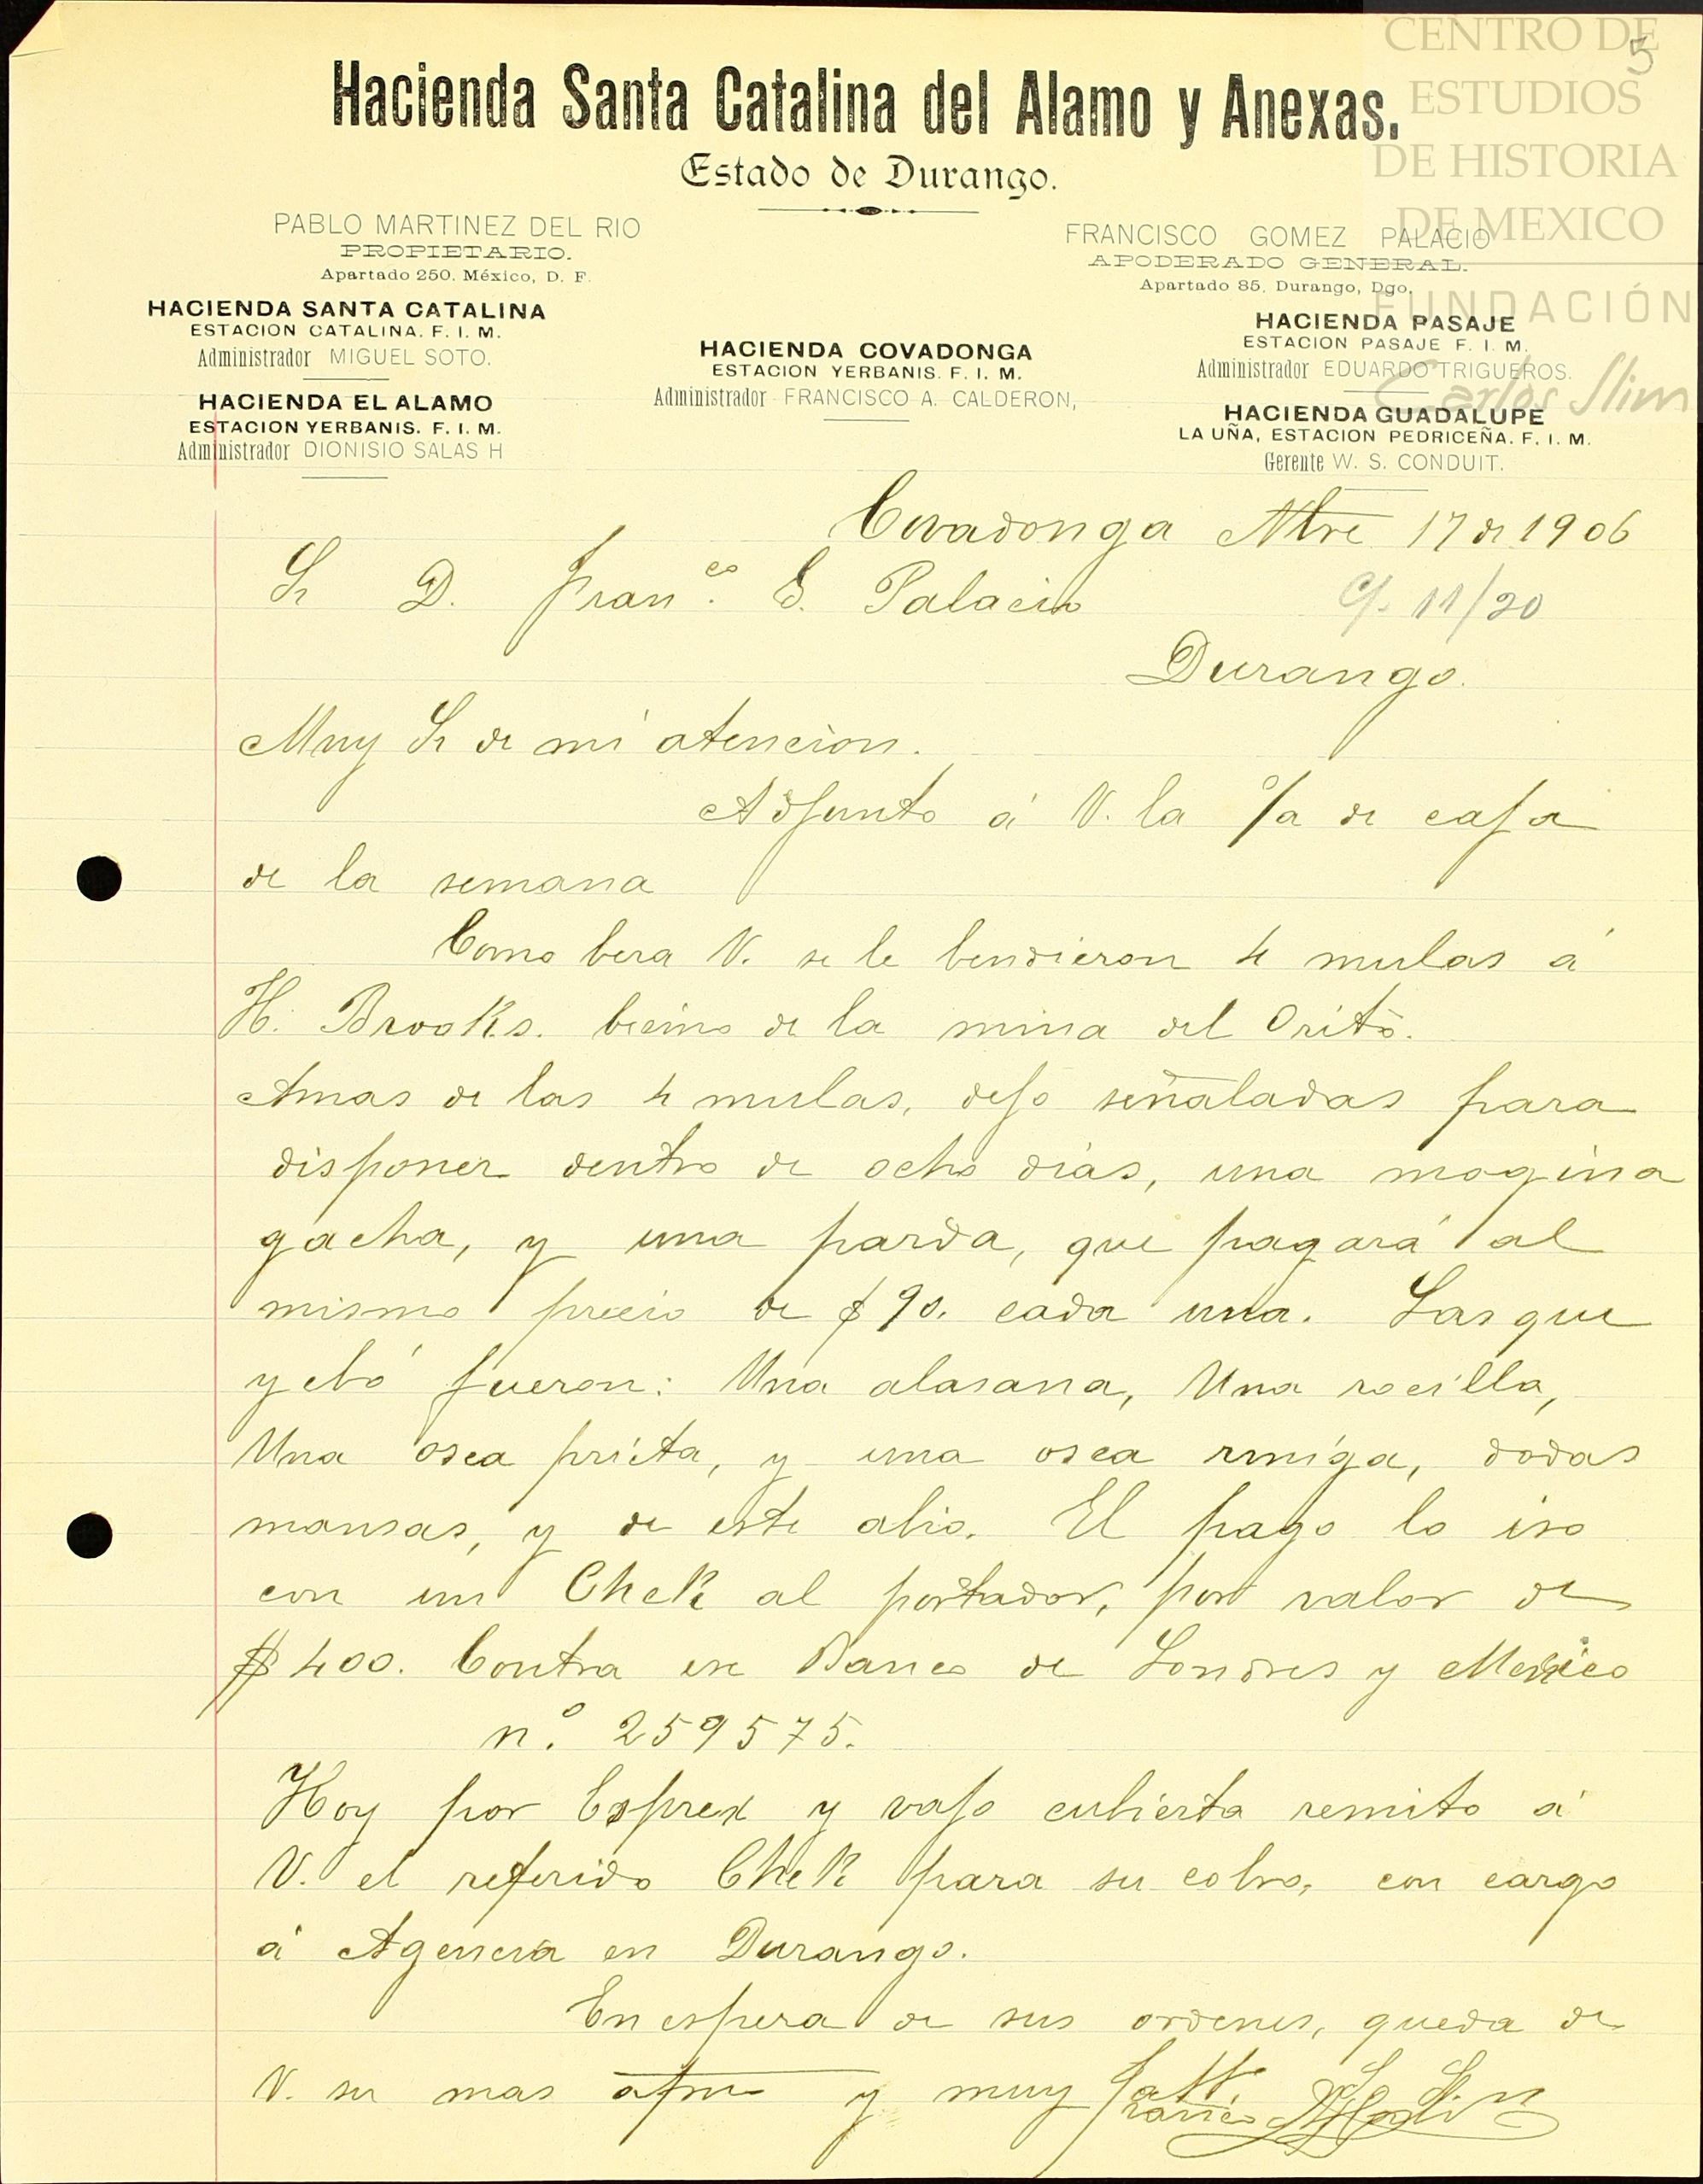 CENTRO DE
ESTUDIOS
DE HISTORIA
DE MEXICO
FUNDACIÓN
Carlos Slim
5
Hacienda Santa Catalina del Alamo y Anexas.
Estado de Durango.
PABLO MARTINEZ DEL RIO
PROPIETARIO.
Apartado 250. México, D. F.
FRANCISCO GOMEZ PALACIO
APODERADO GENERAL.
Apartado 85, Durango, Dgo.
HACIENDA SANTA CATALINA
ESTACION CATALINA. F. I. M.
Administrador MIGUEL SOTO.
HACIENDA EL ALAMO
ESTACION YERBANIS. F. I. M.
Administrador DIONISIO SALAS H
HACIENDA COVADONGA
ESTACION YERBANIS. F. I. M.
Administrador FRANCISCO A. CALDERON,
HACIENDA PASAJE
ESTACION PASAJE F. I. M.
Administrador EDUARDO TRIGUEROS.
HACIENDA GUADALUPE
LA UÑA, ESTACION PEDRICEÑA. F. I. M.
Gerente W. S. CONDUIT.
Covadonga Nbre 17 de 1906
Sr D. Franco. G. Palacio
C/. 11/20
Durango.
Muy Sr de mi atencion.
Adjunto á V. la c/a de caja
de la semana
Como bera V. se le bendieron 4 mulas á
H. Brooks. becino de la mina del Orito.
Amas de las 4 mulas, dejo señaladas para
disponer dentro de ocho dias, una mogina
gacha, y una parda, que pagará al
mismo precio de $90. cada una. Las que
yebó fueron: Una alasana, Una rocilla,
Una osca prieta, y una osca rmiga, dodas
mansas, y de este abio. El pago lo iso
con un Chek al portador, por valor de
$400. Contra ese Banco de Londres y Mexico
n.o 259575.
Hoy por Esprex y vajo cubierta remito á
V. el referido Chek para su cobro, con cargo
á Agencia en Durango.
En espera de sus ordenes, queda de
V. su mas afmo y muy att. S. S.